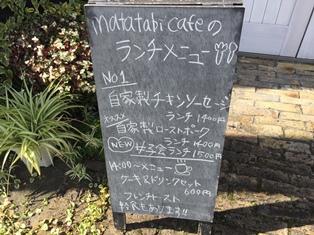 matatabi cafeの
ランチメニュー
No.1
自家製チキンソーセージ
ランチ1400円
xxxx
自家製ローストポーク
ランチ1400円
NEW 女子会ランチ1500円
14:00〜メニュー
ケーキ&ドリンクセット
600円
フレンチトースト
もあります!!